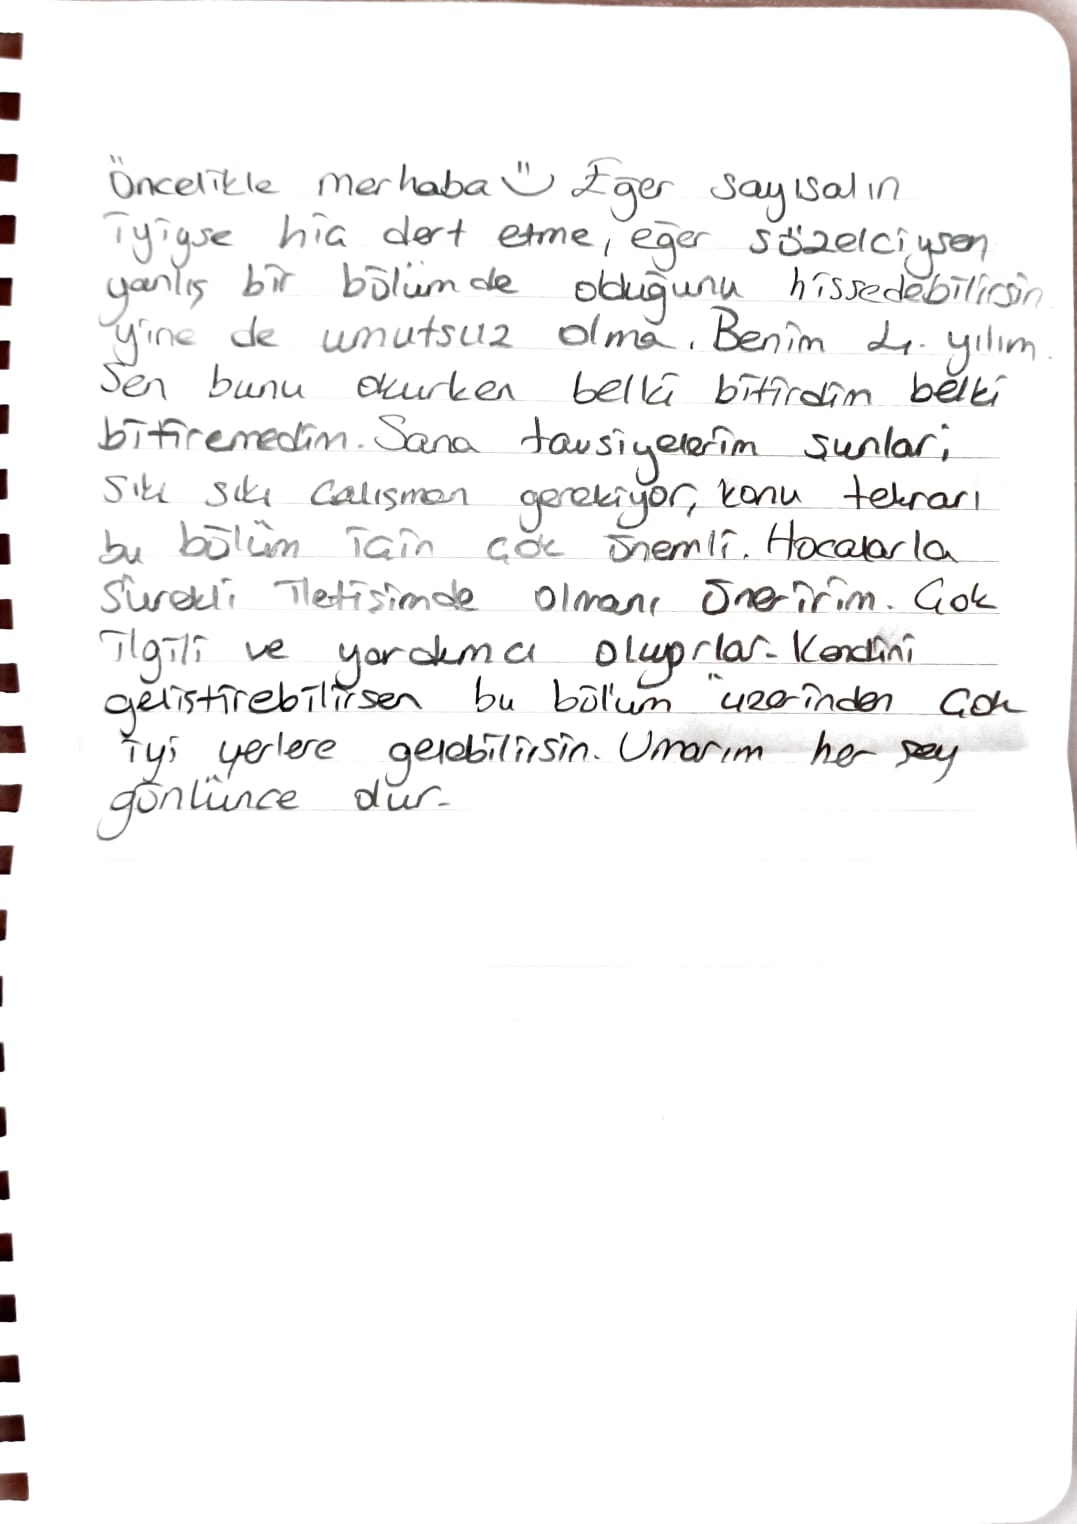 Öncelikle merhaba Ü Eğer sayısalın
iyiyse hiç dert etme, eğer sözelciysen
yanlış bir bölümde olduğunu hissedebilirsin
yine de umutsuz olma. Benim 4. yılım.
Sen bunu okurken belki bitirdim belki
bitiremedim. Sana tavsiyelerim şunlar;
Sıkı sıkı çalışman gerekiyor, konu tekrarı
bu bölüm için çok önemli. Hocalarla
Sürekli iletişimde olmanı öneririm. Çok
ilgili ve yardımcı oluyorlar. Kendini
geliştirebilirsen bu bölüm üzerinden çok
iyi yerlere gelebilirsin. Umarım her şey
gönlünce olur.